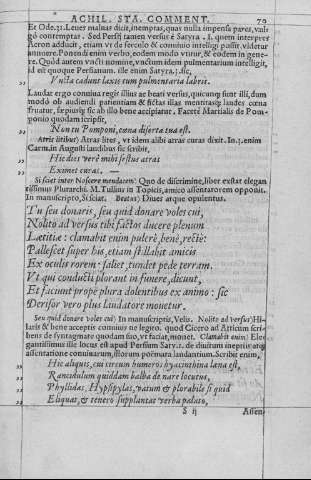 ACHIL. STA. COMMENT. 70
Et Ode.31. Leues malnas dicit, ineniptas, quas nulla impensa pares, vulgo contemptas. Sed Persij tamen versus è Satyra .1. quem interpres
Acron adducit, etiam vt de ferculo & conuiuio intelligi possit, videtur
annuere. Ponendi enim verbo, eodem modo vtitur, & eodem in genere. Quòd autem vncti nomine, vnctum idem pulmentarium intelligit,
id est quoque Persianum. ille enim Satyra.3. sic,
Vncta cadunt laxis tum pulmentaria labris.
Laudat ergo conuiua regis illius ac beati versus, quicunq; sunt illi, dummodo ob audiendi patientiam & fictas illas mentitasq; laudes cœna
fruatur, sæpiusq; sic ab illo bene accipiatur. Facetè Martialis de Pomponio quodam scripsit,
Non tu Pomponi, cœna diserta tua est.
Atris litibus) Atras lites, vt idem alibi atras curas dixit. In.3. enim
Carm. in Augusti laudibus sic scribit,
Hic dies verè mihi festus atras
Eximet curas. —
Si sciet inter Noscere mendacem) Quo de discrimine, liber extat elegantissimus Plutarchi. M. Tullius in Topicis, amico assentatorem opponit.
In manuscripto, Si sciat. Beatus) Diues atque opulentus.
Tu seu donaris, seu quid donare voles cui,
Nolito ad versus tibi factos ducere plenum
Lætitiæ: clamabit enim pulcrè, benè, rectè:
Pallescet super his, etiam stillabit amicis
Ex oculis rorem: saliet, tundet pede terram.
Vt qui conducti plorant in funere, dicunt,
Et faciunt propè plura dolentibus ex animo: sic
Derisor vero plus laudatore mouetur.
Seu quid donare voles cui) In manuscriptis, Velis. Nolito ad versus) Hilaris & bene acceptis conuiuis ne legito. quod Cicero ad Atticum scribens de syntagmate quodam suo, vt faciat, monet. Clamabit enim) Elegantissimus ille locus est apud Persium Saty.1. de diuitum ineptijs atq;
assentatione conuiuarum, illorum poëmata laudantium. Scribit enim,
Hic aliquis, cui circum humeros hyacinthina læna est,
Rancidulum quiddam balba de nare locutus,
Phyllidas, Hypsipylas, vatum & plorabile si quid
Eliquat, & tenero supplantat verba palato,
S ij Assen-